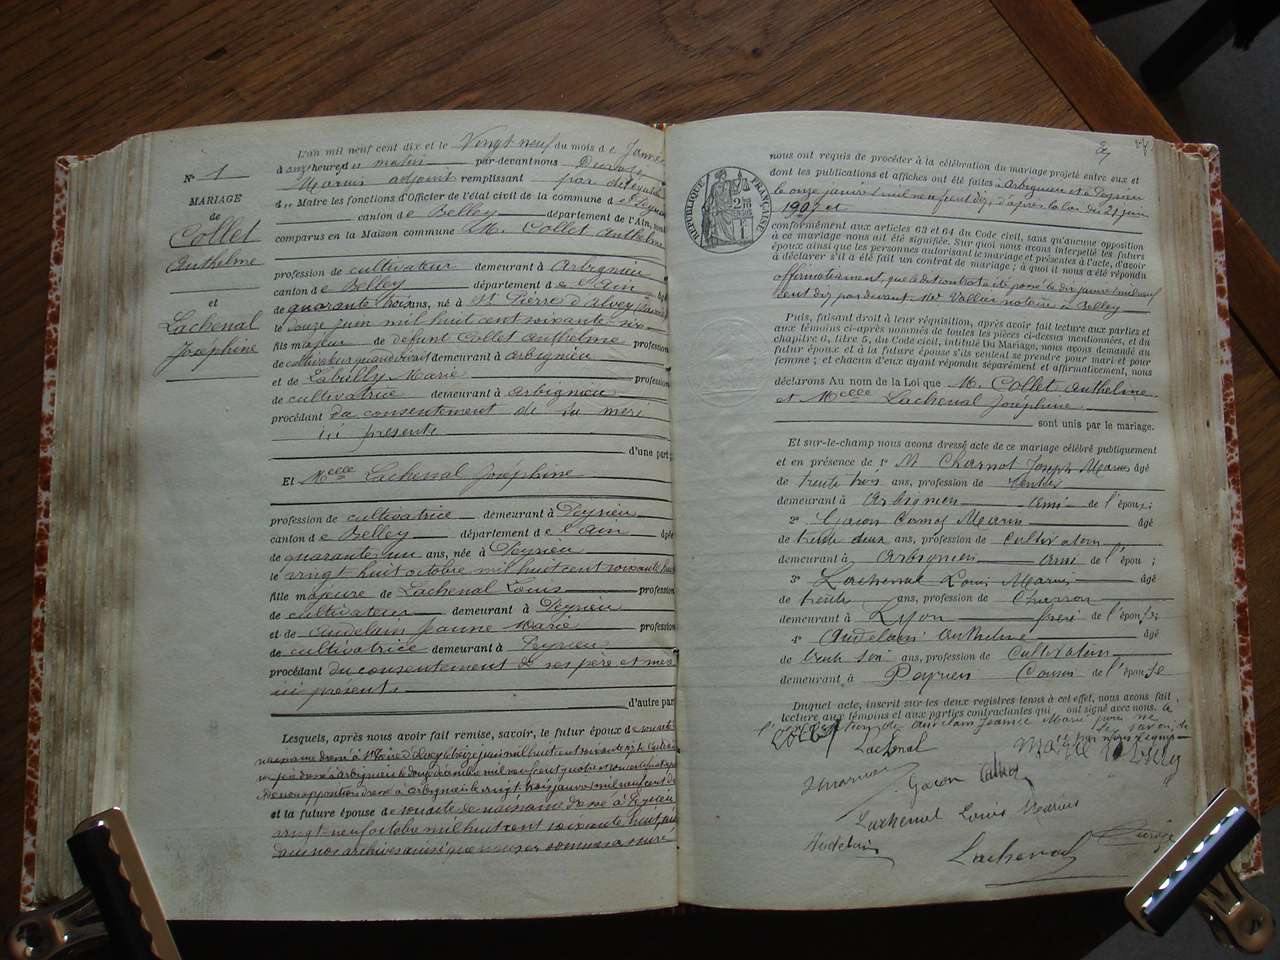 N° 1
MARIAGE
de
Collet
Anthelme
et
Lachenal
Joséphine
L'an mil neuf cent dix et le Vingt neuf du mois de Janvier
à onze heures du matin par-devant nous
Marius adjoint remplissant par délégation
d Maire les fonctions d'Officier de l'état civil de la commune de Peyrieu
canton de Belley département de l'Ain, sont
comparus en la Maison commune M. Collet Anthelme
profession de cultivateur demeurant à Arbignieu
canton de Belley département de l'Ain âgé
de quarante trois ans, né à St Pierre d'Alvey (Savoie)
le douze juin mil huit cent soixante six
fils majeur de défunt Collet Anthelme profession
de cultivateur quand vivait demeurant à Arbignieu
et de Labully Marie profession
de cultivatrice demeurant à Arbignieu
procédant du consentement de sa mère
ici présente
d'une part;
Et Melle Lachenal Joséphine
profession de cultivatrice demeurant à Peyrieu
canton de Belley département de l'Ain âgée
de quarante un ans, née à Peyrieu
le vingt huit octobre mil huit cent soixante huit
fille majeure de Lachenal Louis profession
de cultivateur demeurant à Peyrieu
et de Audelain Jeanne Marie profession
de cultivatrice demeurant à Peyrieu
procédant du consentement de ses père et mère
ici présents
d'autre part
Lesquels, après nous avoir fait remise, savoir, le futur époux de son acte
naissance dressé à St Pierre d'Alvey le treize juin mil huit cent soixante six
dressé à Arbignieu le douze mil neuf cent quatre
de non opposition dressé à Arbignieu le vingt trois janvier mil neuf cent dix
et la future épouse de son acte de naissance dressé à Peyrieu
vingt neuf octobre mil huit cent soixante huit
dans nos archives ainsi que nous en sommes assuré
nous ont requis de procéder à la célébration du mariage projeté entre eux et
dont les publications et affiches ont été faites à Arbignieu et à Peyrieu
le onze janvier mil neuf cent dix, d'après la loi du 21 juin
1907 et
conformément aux articles 63 et 64 du Code civil, sans qu'aucune opposition
à ce mariage nous ait été signifiée. Sur quoi nous avons interpellé les futurs
époux ainsi que les personnes autorisant le mariage et présentes à l'acte, d'avoir
à déclarer s'il a été fait un contrat de mariage; à quoi il nous a été répondu
affirmativement, que le dit contrat a été passé le dix janvier mil neuf
cent dix par devant Me Vallar notaire à Belley
Puis, faisant droit à leur réquisition, après avoir fait lecture aux parties et
aux témoins ci-après nommés de toutes les pièces ci-dessus mentionnées, et du
chapitre 6, titre 5, du Code civil, intitulé Du Mariage, nous avons demandé au
futur époux et à la future épouse s'ils veulent se prendre pour mari et pour
femme; et chacun d'eux ayant répondu séparément et affirmativement, nous
déclarons Au nom de la Loi que M. Collet Anthelme
et Melle Lachenal Joséphine
sont unis par le mariage.
Et sur-le-champ nous avons dressé acte de ce mariage célébré publiquement
et en présence de 1° M Charnot Joseph Marius âgé
de trente trois ans, profession de
demeurant à Arbignieu ami de l'époux;
2° Gacon Marin âgé
de trente deux ans, profession de cultivateur
demeurant à Arbignieu ami de l'époux;
3° Lachenal Louis Marius âgé
de trente ans, profession de Charron
demeurant à Lyon frère de l'épouse;
4° Audelain Anthelme âgé
de trente six ans, profession de Cultivateur
demeurant à Peyrieu Cousin de l'épouse
Duquel acte, inscrit sur les deux registres tenus à cet effet, nous avons fait
lecture aux témoins et aux parties contractantes qui ont signé avec nous. à
l'exception de Audelain Jeanne Marie pour ne
Collet
Lachenal
Marie
Gacon
Lachenal Louis Marius
Audelain
Lachenal
RÉPUBLIQUE FRANÇAISE